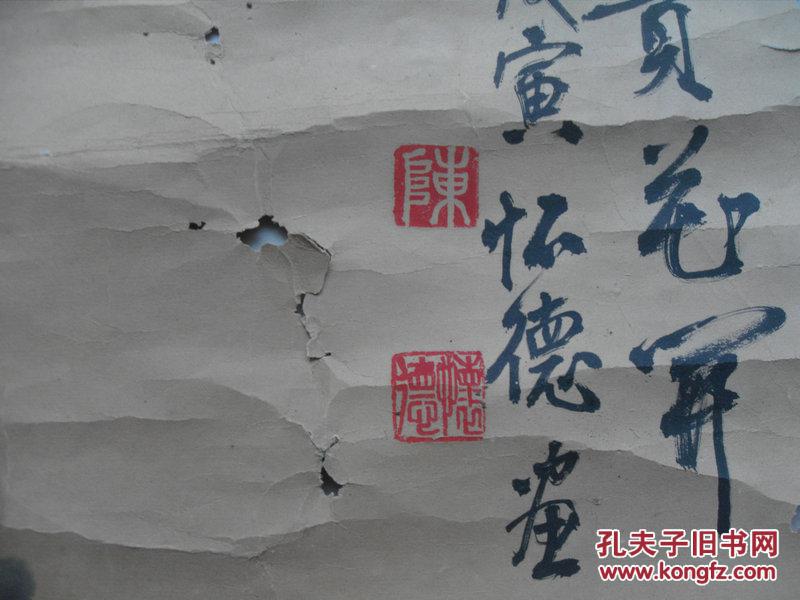 贵花开
戊寅怀德画
陳
懷德
孔夫子旧书网
www.kongfz.com